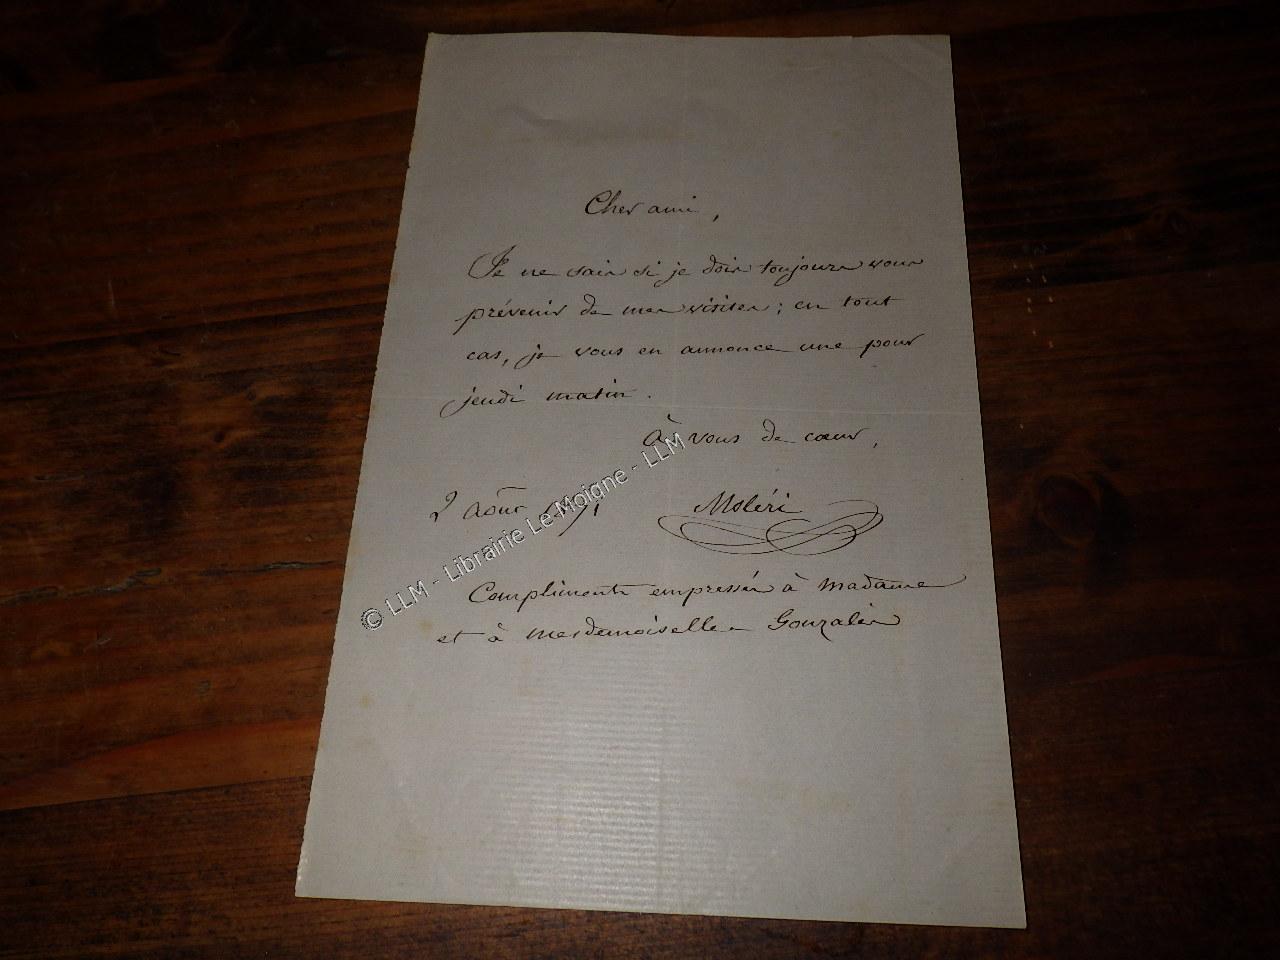 Cher ami,
Je ne sais si je dois toujours vous
prévenir de mes visites ; en tout
cas, je vous en annonce une pour
jeudi matin.
à vous de cœur,
2 août
Moléri
Compliments empressés à Madame
et à Mesdemoiselles Gonzalès
© LLM - Librairie Le Moigne - LLM